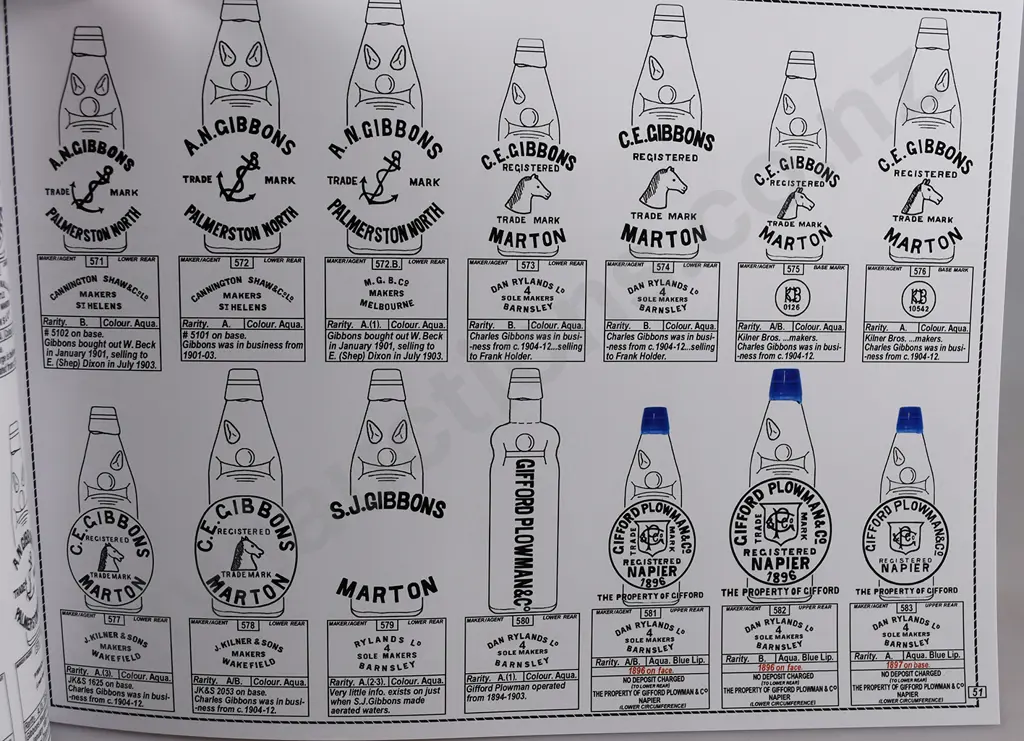 A.N.GIBBONS
TRADE MARK
PALMERSTON NORTH
MAKER/AGENT 571 LOWER REAR
CANNINGTON SHAW&Co Lo
MAKERS
ST HELENS
Rarity. B. Colour. Aqua.
# 5102 on base.
Gibbons bought out W. Beck
in January 1901, selling to
E. (Shep) Dixon in July 1903.
A.N.GIBBONS
TRADE MARK
PALMERSTON NORTH
MAKER/AGENT 572 LOWER REAR
CANNINGTON SHAW&Co Lo
MAKERS
ST HELENS
Rarity. A. Colour. Aqua.
# 5101 on base.
Gibbons was in business from
1901-03.
A.N.GIBBONS
TRADE MARK
PALMERSTON NORTH
MAKER/AGENT 572.B. LOWER REAR
M.G.B.Co
MAKERS
MELBOURNE
Rarity. A.(1). Colour. Aqua.
Gibbons bought out W. Beck
in January 1901, selling to
E. (Shep) Dixon in July 1903.
C.E.GIBBONS
REGISTERED
TRADE MARK
MARTON
MAKER/AGENT 573 LOWER REAR
DAN RYLANDS Lo
4
SOLE MAKERS
BARNSLEY
Rarity. B. Colour. Aqua.
Charles Gibbons was in busi-
-ness from c.1904-12...selling
to Frank Holder.
C.E.GIBBONS
REGISTERED
TRADE MARK
MARTON
MAKER/AGENT 574 LOWER REAR
DAN RYLANDS Lo
4
SOLE MAKERS
BARNSLEY
Rarity. B. Colour. Aqua.
Charles Gibbons was in busi-
-ness from c.1904-12...selling
to Frank Holder.
C.E.GIBBONS
REGISTERED
TRADE MARK
MARTON
MAKER/AGENT 575 BASE MARK
KB
0126
Rarity. A/B. Colour. Aqua.
Kilner Bros. ...makers.
Charles Gibbons was in busi-
-ness from c.1904-12.
C.E.GIBBONS
REGISTERED
TRADE MARK
MARTON
MAKER/AGENT 576 BASE MARK
KB
10542
Rarity. A. Colour. Aqua.
Kilner Bros. ...makers.
Charles Gibbons was in busi-
-ness from c.1904-12.
C.E.GIBBONS
REGISTERED
TRADE MARK
MARTON
MAKER/AGENT 577 LOWER REAR
J.KILNER & SONS
MAKERS
WAKEFIELD
Rarity. A.(3). Colour. Aqua.
JK&S 1625 on base.
Charles Gibbons was in busi-
-ness from c.1904-12.
C.E.GIBBONS
REGISTERED
TRADE MARK
MARTON
MAKER/AGENT 578 LOWER REAR
J.KILNER & SONS
MAKERS
WAKEFIELD
Rarity. A/B. Colour. Aqua.
JK&S 2053 on base.
Charles Gibbons was in busi-
-ness from c.1904-12.
S.J.GIBBONS
MARTON
MAKER/AGENT 579 LOWER REAR
RYLANDS Lo
4
SOLE MAKERS
BARNSLEY
Rarity. A.(2-3). Colour. Aqua.
Very little info. exists on just
when S.J.Gibbons made
aerated waters.
GIFFORD PLOWMAN&Co
MAKER/AGENT 580 LOWER REAR
DAN RYLANDS Lo
4
SOLE MAKERS
BARNSLEY
Rarity. A.(1). Colour. Aqua.
Gifford Plowman operated
from 1894-1903.
GIFFORD PLOWMAN&Co
TRADE MARK
REGISTERED
NAPIER
1896
THE PROPERTY OF GIFFORD
MAKER/AGENT 581 UPPER REAR
DAN RYLANDS Lo
4
SOLE MAKERS
BARNSLEY
Rarity. A/B. Aqua. Blue Lip.
1896 on face.
NO DEPOSIT CHARGED
(TO LOWER REAR)
THE PROPERTY OF GIFFORD PLOWMAN & Co
NAPIER
(LOWER CIRCUMFERENCE)
GIFFORD PLOWMAN&Co
TRADE MARK
REGISTERED
NAPIER
1896
THE PROPERTY OF GIFFORD
MAKER/AGENT 582 UPPER REAR
DAN RYLANDS Lo
4
SOLE MAKERS
BARNSLEY
Rarity. B. Aqua. Blue Lip.
1896 on face.
NO DEPOSIT CHARGED
(TO LOWER REAR)
THE PROPERTY OF GIFFORD PLOWMAN & Co
NAPIER
(LOWER CIRCUMFERENCE)
GIFFORD PLOWMAN&Co
REGISTERED
NAPIER
THE PROPERTY OF GIFFORD
MAKER/AGENT 583 UPPER REAR
DAN RYLANDS Lo
4
SOLE MAKERS
BARNSLEY
Rarity. A. Aqua. Blue Lip.
1897 on base.
NO DEPOSIT CHARGED
(TO LOWER REAR)
THE PROPERTY OF GIFFORD PLOWMAN & Co
NAPIER
(LOWER CIRCUMFERENCE)
51